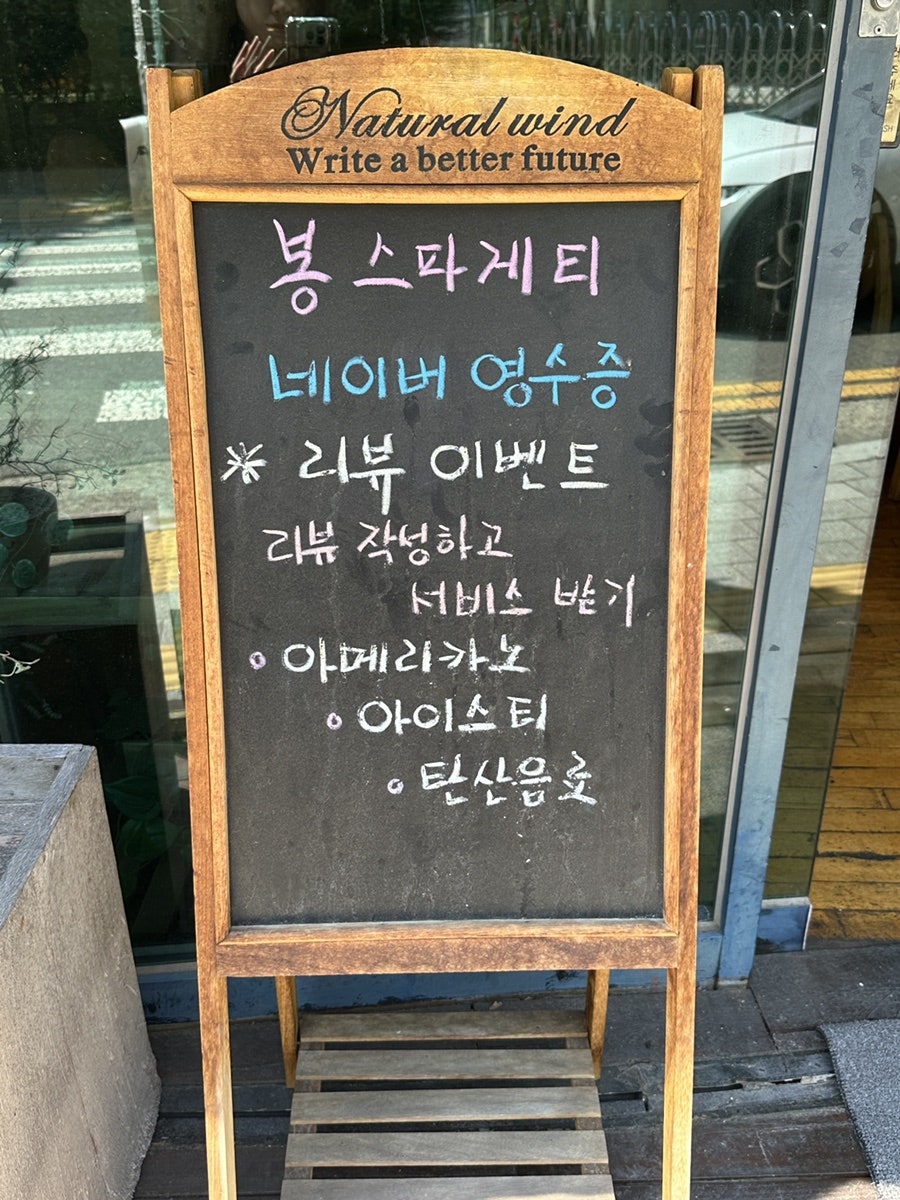 Natural wind
Write a better future
봉 스파게티
네이버 영수증
※ 리뷰 이벤트
리뷰 작성하고
서비스 받기
• 아메리카노
• 아이스티
• 탄산음료